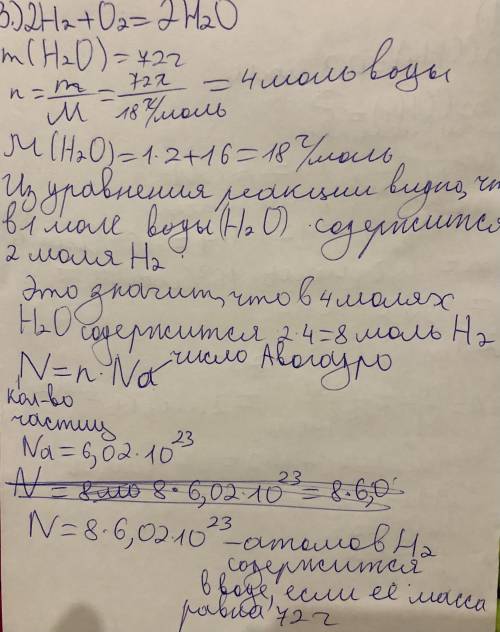 3.) 2H₂+O₂=2H₂O
m(H₂O)=72г
n = m/M = 72г/18 г/моль = 4 моль воды
M(H₂O)=1·2+16=18 г/моль
Из уравнения реакции видно, чт
в 1 моле воды (H₂O) содержится
2 моля H₂.
Это значит, что в 4 молях
H₂O содержится 2·4=8 моль H₂
N=n·Na число Авогадро
кол-во
частиц
Na=6,02·10²³
N = 8 · 6,02·10²³ = 8·6,0
N=8·6,02·10²³ -атомов H₂
содержится
в воде, если её масса
равна 72г